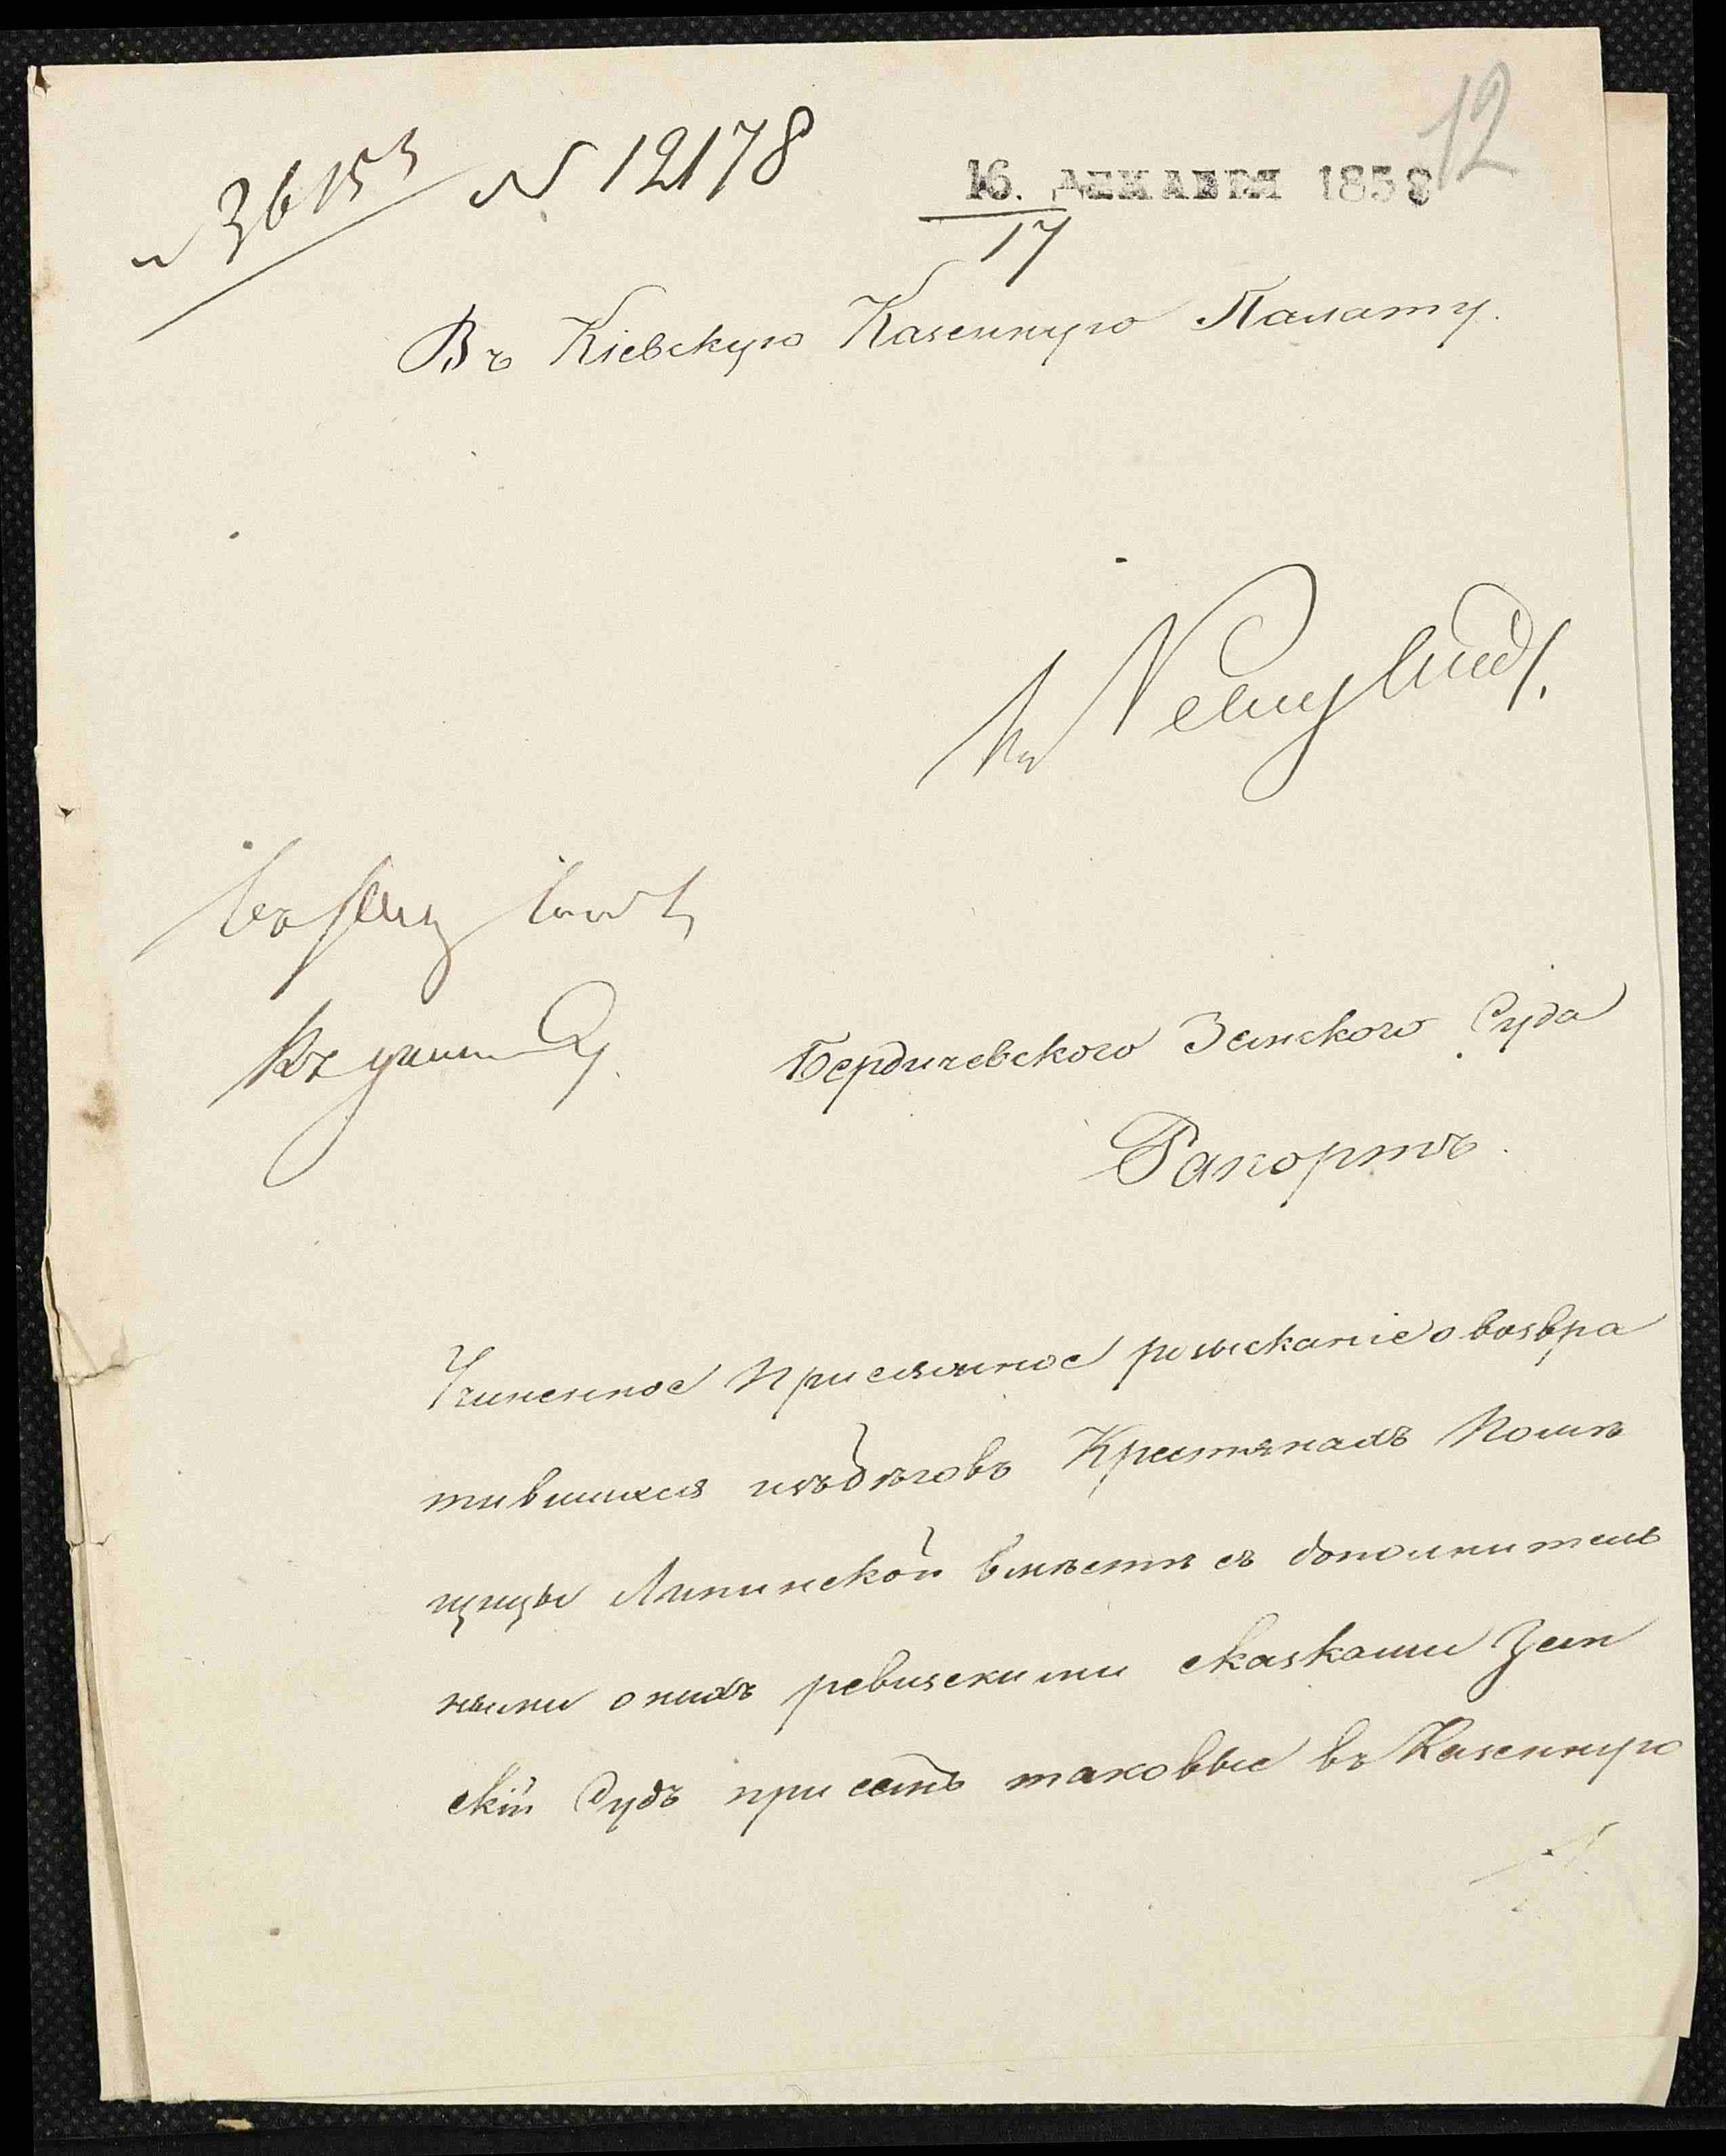 12
№ 12178
16. ДЕКАБРЯ 1858
17
Въ Кіевскую Казенную Палату.
Бердичевского Земского Суда
Рапортъ.
Учиненное присяжное розысканіе о возвра
тившихся изъ бѣговъ Крестянахъ Помѣ
щицы Липинской вмѣстѣ съ дополнитель
ными о нихъ ревизскими сказками Зем
скій Судъ при семъ таковые въ Казенную